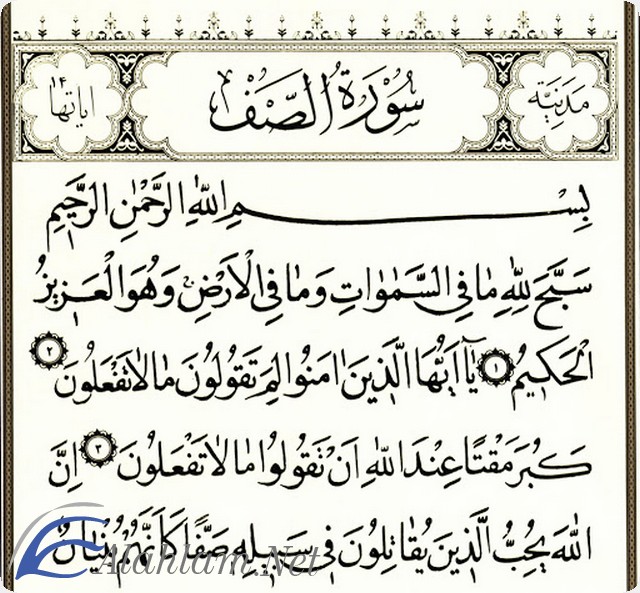 مَدَنِيَّة سُورَةُ الصَّفِّ اياتها ١٤
بِسْمِ اللّٰهِ الرَّحْمٰنِ الرَّحٖيمِ
سَبَّحَ لِلّٰهِ مَا فِي السَّمٰوَاتِ وَمَا فِي الْاَرْضِۚ وَهُوَ الْعَزٖيزُ
الْحَكٖيمُ ١ يَٓا اَيُّهَا الَّذٖينَ اٰمَنُوا لِمَ تَقُولُونَ مَا لَا تَفْعَلُونَ ٢
كَبُرَ مَقْتًا عِنْدَ اللّٰهِ اَنْ تَقُولُوا مَا لَا تَفْعَلُونَ ٣ اِنَّ
اللّٰهَ يُحِبُّ الَّذٖينَ يُقَاتِلُونَ فٖي سَبٖيلِهٖ صَفًّا كَاَنَّهُمْ بُنْيَانٌ
Alahlam.Net